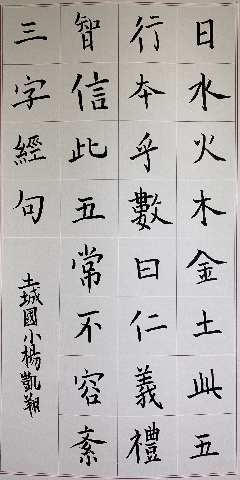 日水火木金土此五
行本乎數曰仁義禮
智信此五常不容紊
三字經句
土城國小楊凱翔